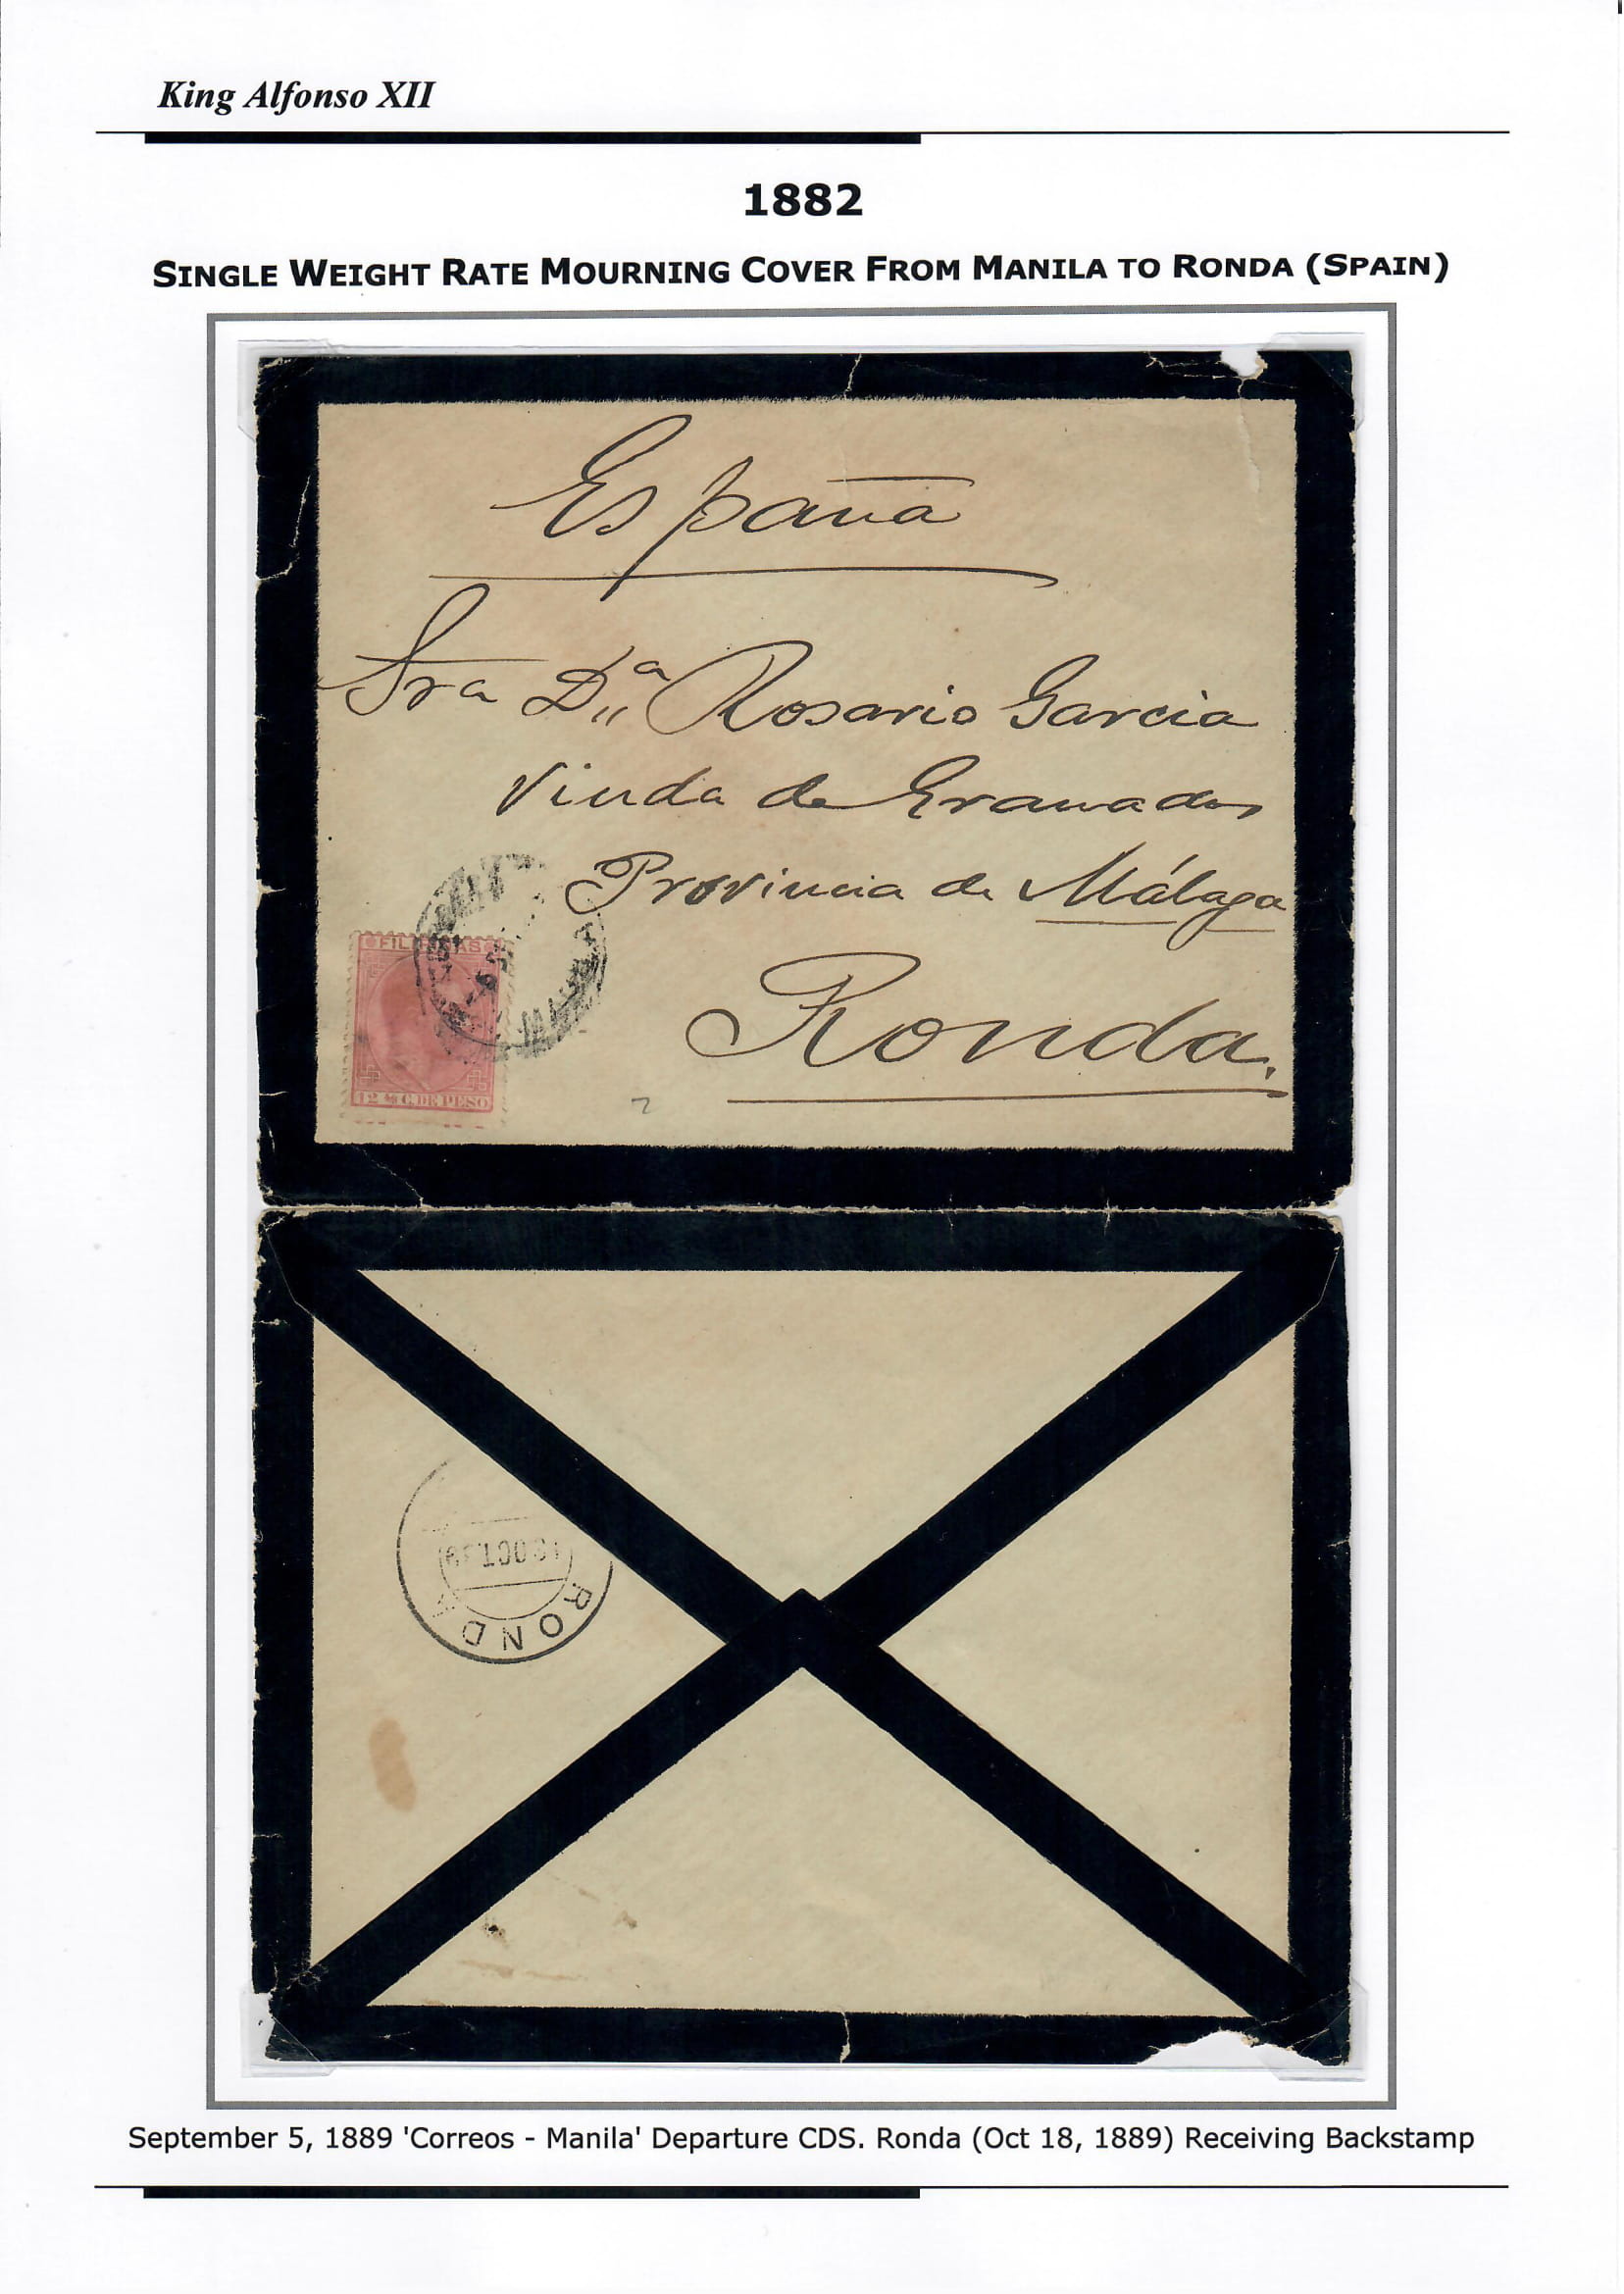 King Alfonso XII
1882
SINGLE WEIGHT RATE MOURNING COVER FROM MANILA TO RONDA (SPAIN)
España
Sra Dª Rosario Garcia
Viuda de Granados
Provincia de Málaga
FILIPINAS
12 4/8 C. DE PESO
Ronda.
RONDA
September 5, 1889 'Correos - Manila' Departure CDS. Ronda (Oct 18, 1889) Receiving Backstamp